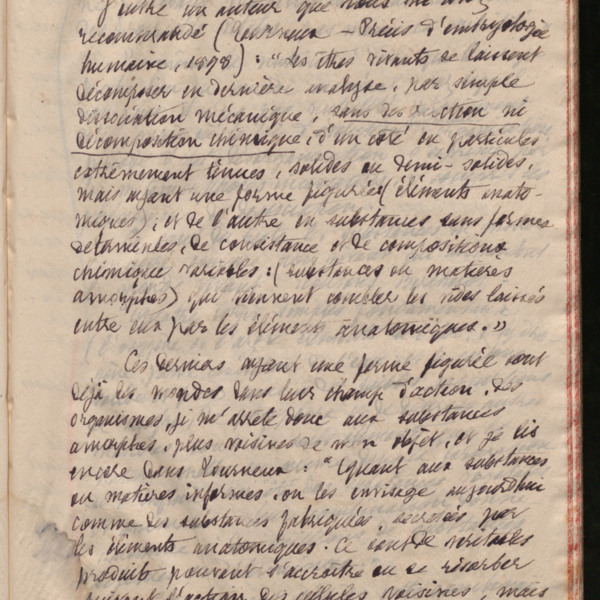 J'ouvre un auteur que vous m'avez
recommandé (Tourneux — Précis d'embryologie
humaine, 1898) : "Les êtres vivants se laissent
décomposer en dernière analyse, par simple
dissociation mécanique, sans destruction ni
décomposition chimique, d'un côté en particules
extrêmement ténues, solides ou demi-solides,
mais ayant une forme figurée (éléments anato-
miques) ; et de l'autre en substances sans formes
déterminées, de consistance et de composition
chimique variables : (substances ou matières
amorphes) qui viennent combler les vides laissés
entre eux par les éléments anatomiques. »
Ces derniers ayant une forme figurée sont
déjà des mondes dans leur champ d'action, des
organismes, je m'arrête donc aux substances
amorphes, plus voisines de mon objet, et je lis
encore dans Tourneux : "Quant aux substances
ou matières informes, on les envisage aujourd'hui
comme des substances fabriquées, secrétés par
les éléments anatomiques. Ce sont de véritables
produits pouvant s'accroître ou se résorber
suivant l'action des cellules voisines, mais